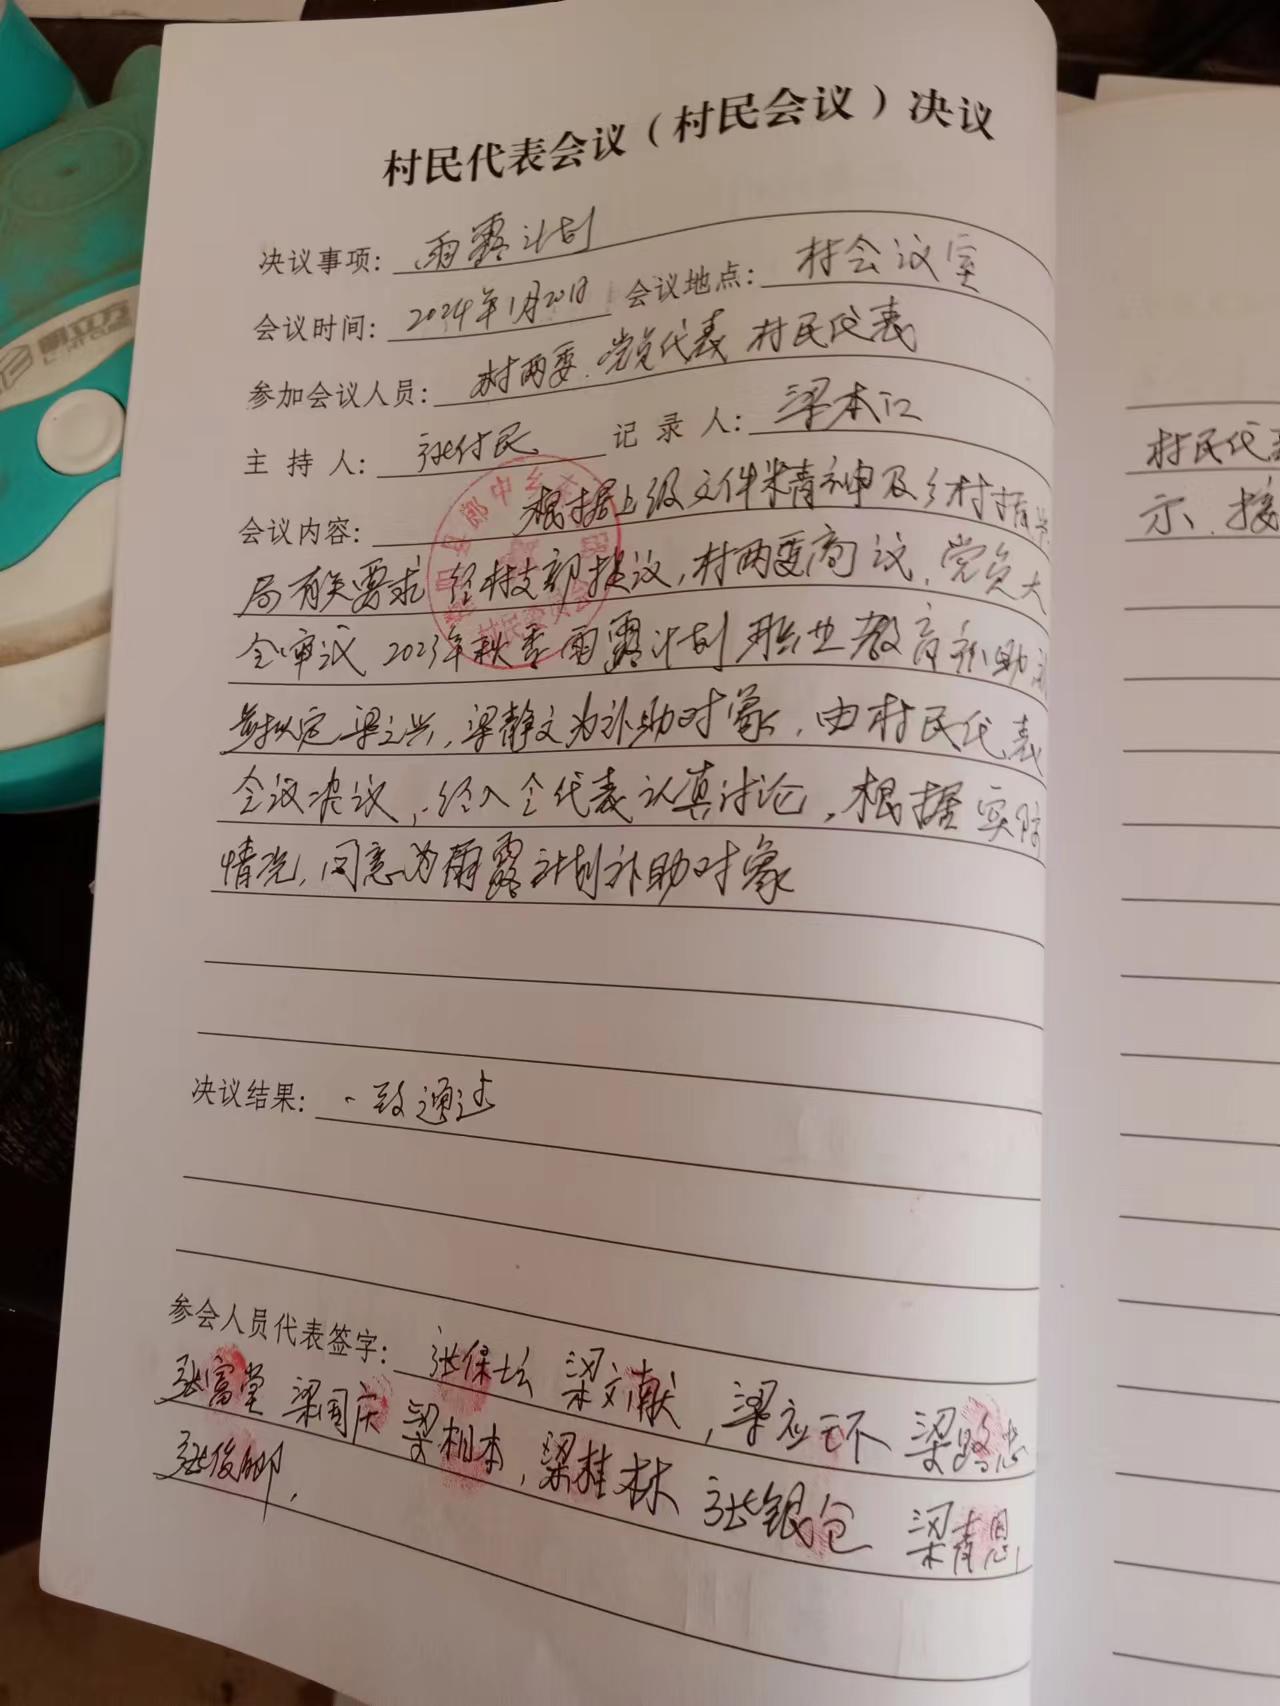 村民代表会议（村民会议）决议
决议事项: 雨露计划
会议时间: 2024年1月20日 会议地点: 村会议室
参加会议人员: 村两委、党员代表 村民代表
主 持 人: 张付民 记 录 人: 梁本江
会议内容: 根据上级文件精神及乡村振兴
局有关要求 经村支部提议，村两委商议，党员大
会审议 2023年秋季雨露计划职业教育补助
拟定梁之兴，梁静文为补助对象，由村民代表
会议决议，经入会代表认真讨论，根据实际
情况，同意为雨露计划补助对象
决议结果: 一致通过
参会人员代表签字: 张保坛 梁文献，梁应天 梁路忠
张富堂 梁国庆 梁相本，梁桂林 张银仓 梁青恩
张俊卿，
郎中乡
村民委员会
村民代表
示、接